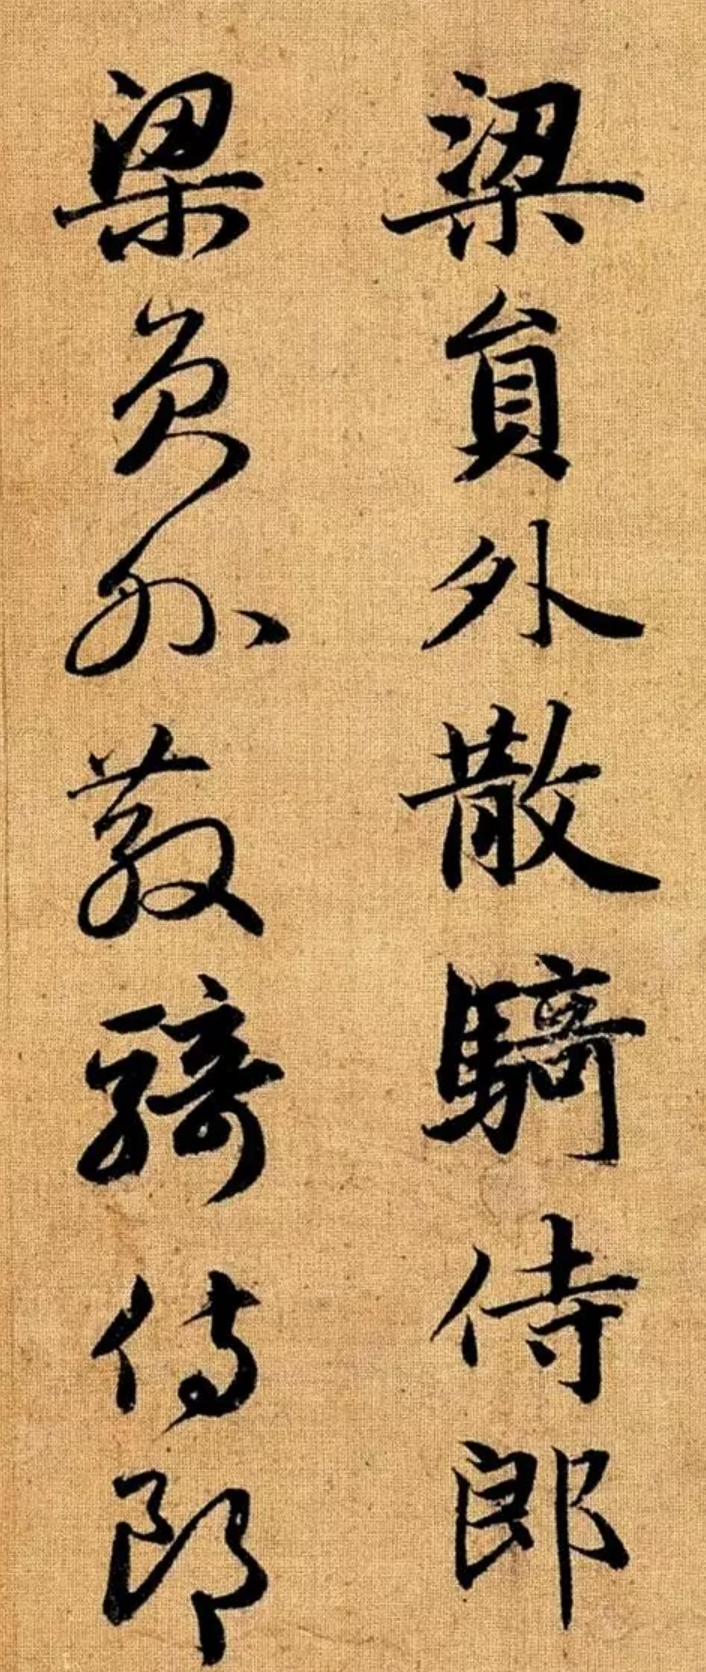 梁員外散騎侍郎
梁員外散騎侍郎